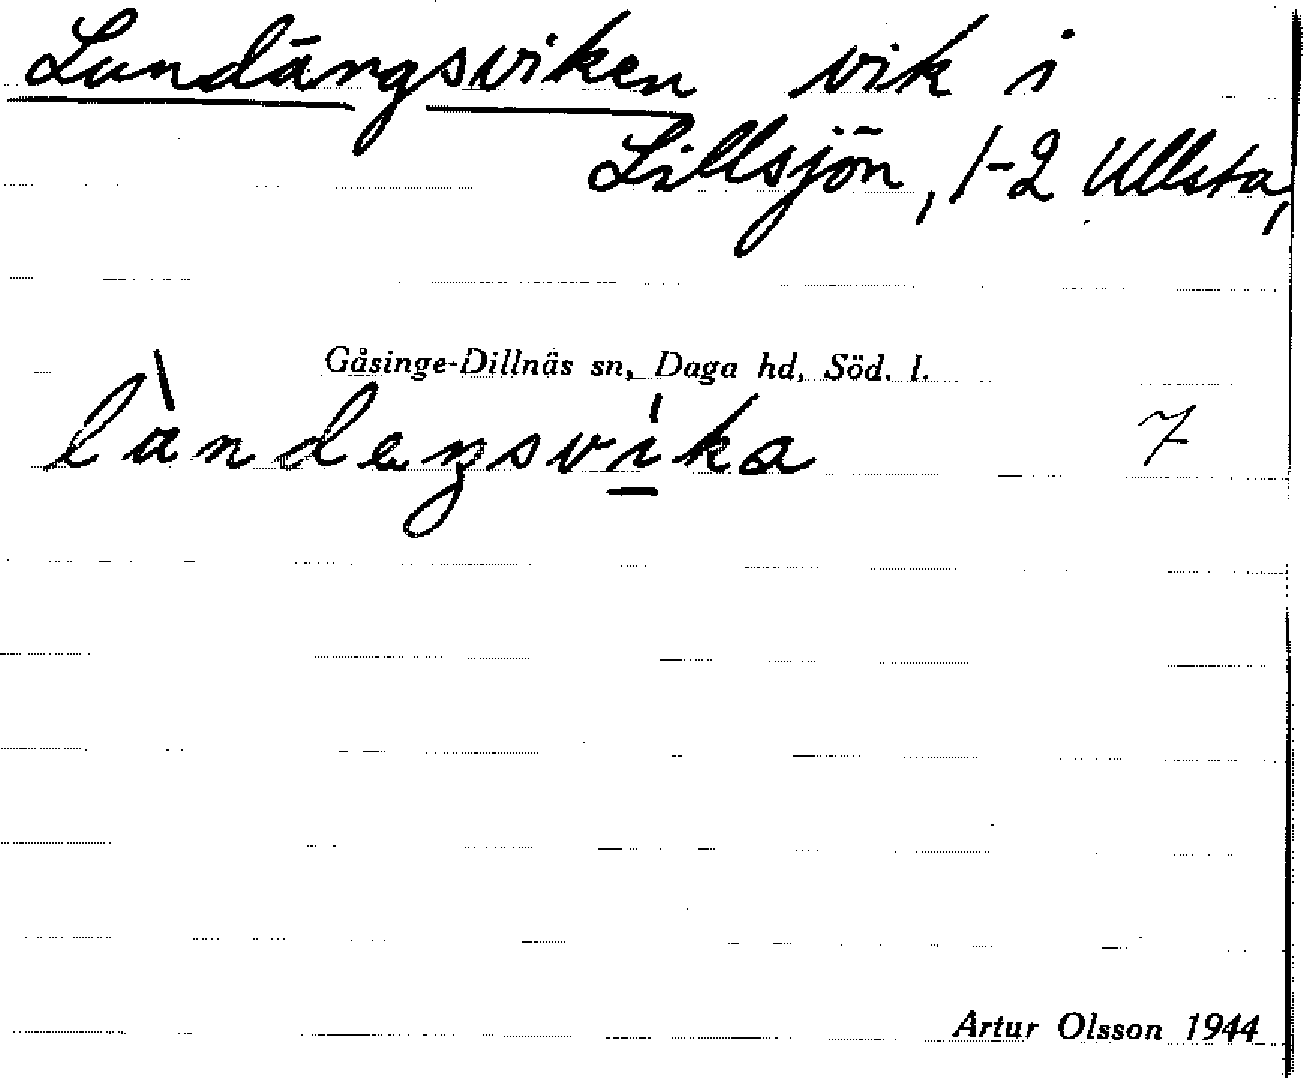 Lundängsviken vik i
Lillsjön, 1-2 Ullsta,
Gåsinge-Dillnäs sn, Daga hd, Söd. l.
làndeŋsvíka 7
Artur Olsson 1944